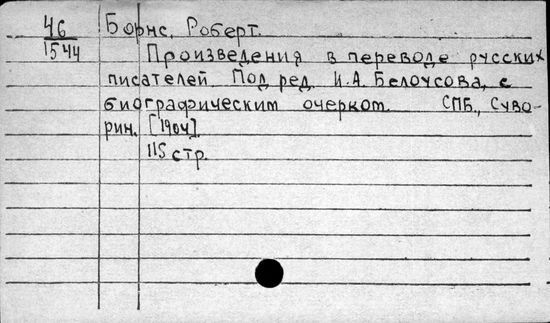 46 Борнс, Роберт.
1544 Произведения в переводе русских
писателей Под ред. И.А. Белоусова, с
биографическим очерком. СПБ., Суво-
рин. [1904].
115 стр.